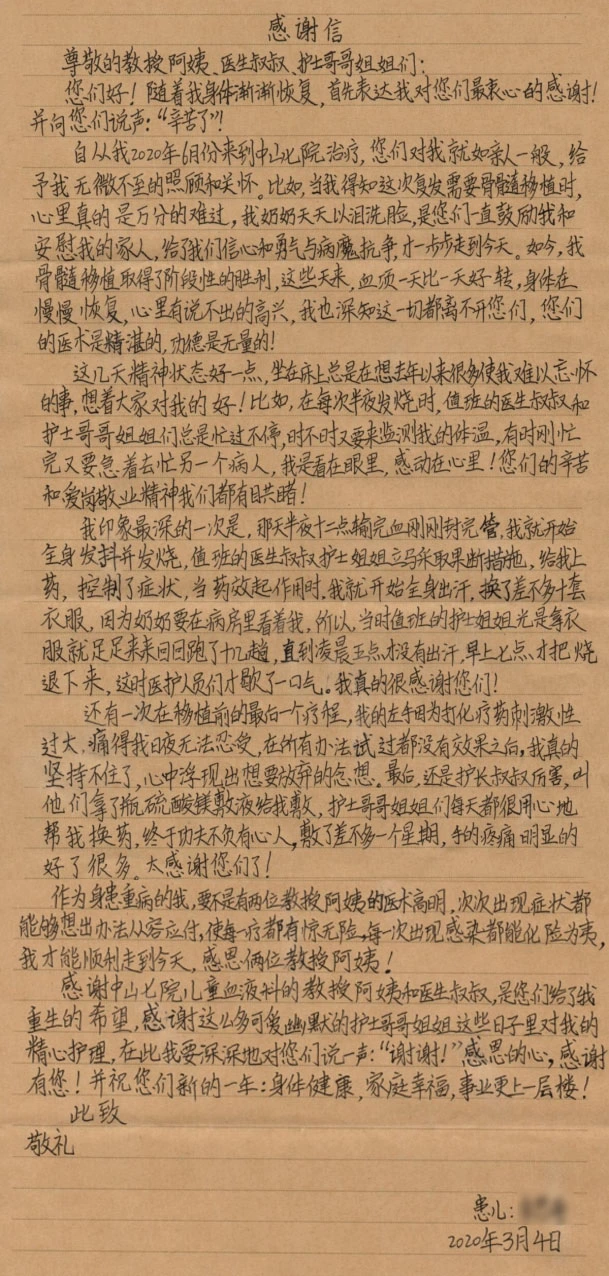 感谢信
尊敬的教授阿姨、医生叔叔、护士哥哥姐姐们:
您们好!随着我身体渐渐恢复,首先表达我对您们最衷心的感谢!
并向您们说声:“辛苦了”!
自从我2020年6月份来到中山七院治疗,您们对我就如亲人一般,给
予我无微不至的照顾和关怀。比如,当我得知这次复发需要骨髓移植时,
心里真的是万分的难过,我奶奶天天以泪洗脸,是您们一直鼓励我和
安慰我的家人,给了我们信心和勇气与病魔抗争,才一步步走到今天。如今,我
骨髓移植取得了阶段性的胜利,这些天来,血项一天比一天好转,身体在
慢慢恢复,心里有说不出的高兴,我也深知这一切都离不开您们,您们
的医术是精湛的,功德是无量的!
这几天精神状态好一点,坐在床上总是在想去年以来很多使我难以忘怀
的事,想着大家对我的好!比如,在每次半夜发烧时,值班的医生叔叔和
护士哥哥姐姐们总是忙过不停,时不时又要来监测我的体温,有时刚忙
完又要急着去忙另一个病人,我是看在眼里,感动在心里!您们的辛苦
和爱岗敬业精神我们都有目共睹!
我印象最深的一次是,那天半夜十二点输完血刚刚封完管,我就开始
全身发抖并发烧,值班的医生叔叔护士姐姐立马采取果断措施,给我上
药,控制了症状,当药效起作用时,我就开始全身出汗,换了差不多十套
衣服,因为奶奶要在病房里看着我,所以,当时值班的护士姐姐光是拿衣
服就足足来来回回跑了十几趟,直到凌晨五点才没有出汗,早上七点才把烧
退下来,这时医护人员们才歇了一口气。我真的很感谢您们!
还有一次在移植前的最后一个疗程,我的左手因为打化疗药刺激性
过大,痛得我日夜无法忍受,在所有办法试过都没有效果之后,我真的
坚持不住了,心中浮现出想要放弃的念想。最后,还是护长叔叔厉害,叫
他们拿了瓶硫酸镁敷液给我敷,护士哥哥姐姐们每天都很用心地
帮我换药,终于功夫不负有心人,敷了差不多一个星期,手的疼痛明显的
好了很多。太感谢您们了!
作为身患重病的我,要不是有两位教授阿姨的医术高明,次次出现症状都
能够想出办法从容应付,使每一疗都有惊无险,每一次出现感染都能化险为夷,
我才能顺利走到今天,感恩俩位教授阿姨!
感谢中山七院儿童血液科的教授阿姨和医生叔叔,是您们给了我
重生的希望,感谢这么多可爱幽默的护士哥哥姐姐这些日子里对我的
精心护理,在此我要深深地对您们说一声:“谢谢!”感恩的心,感谢
有您!并祝您们新的一年:身体健康,家庭幸福,事业更上一层楼!
此致
敬礼
患儿:
2020年3月4日